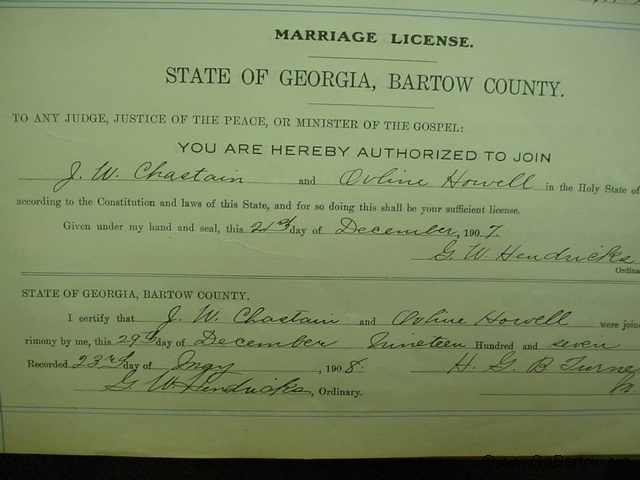 MARRIAGE LICENSE.
STATE OF GEORGIA, BARTOW COUNTY.
TO ANY JUDGE, JUSTICE OF THE PEACE, OR MINISTER OF THE GOSPEL:
YOU ARE HEREBY AUTHORIZED TO JOIN
J. W. Chastain and Ovline Howell in the Holy State of
according to the Constitution and laws of this State, and for so doing this shall be your sufficient license.
Given under my hand and seal, this day of December, 1907.
G. W. Hendricks
Ordina
STATE OF GEORGIA, BARTOW COUNTY.
I certify that J. W. Chastain and Ovline Howell were join
rimony by me, this 29th day of December Nineteen Hundred and seven
Recorded 23rd day of May, 1908. H. G. B. Turne
G. W. Hendricks, Ordinary.